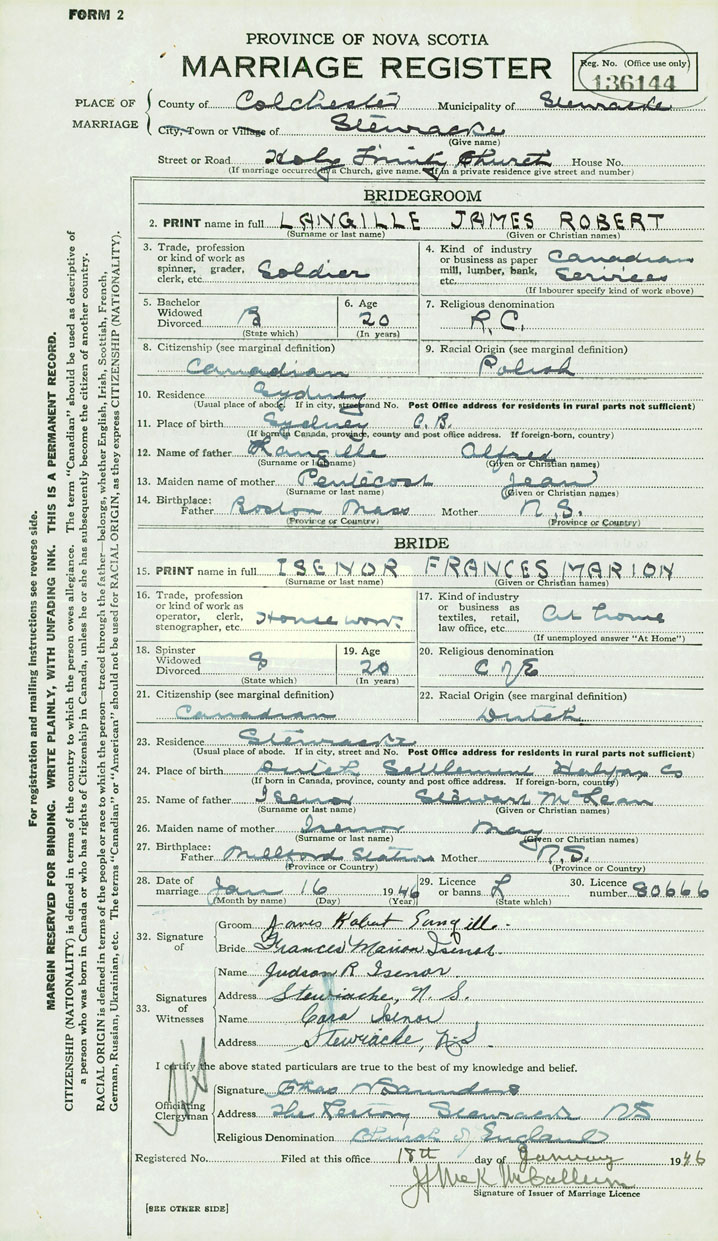 FORM 2
PROVINCE OF NOVA SCOTIA
MARRIAGE REGISTER
Reg. No. (Office use only)
136144
PLACE OF MARRIAGE
County of Colchester Municipality of Stewiacke
City, Town or Village of Stewiacke
(Give name)
Street or Road Holy Trinity Church House No.
(If marriage occurred in a Church, give name. If in a private residence give street and number)
BRIDEGROOM
2. PRINT name in full LANGILLE JAMES ROBERT
(Surname or last name) (Given or Christian names)
3. Trade, profession or kind of work as spinner, grader, clerk, etc. Soldier
4. Kind of industry or business as paper mill, lumber, bank, etc. Canadian Services
(If labourer specify kind of work above)
5. Bachelor Widowed Divorced B
(State which)
6. Age 20
(In years)
7. Religious denomination R.C.
8. Citizenship (see marginal definition) Canadian
9. Racial Origin (see marginal definition) Polish
10. Residence Sydney
(Usual place of abode. If in city, street and No. Post Office address for residents in rural parts not sufficient)
11. Place of birth Sydney C.B.
(If born in Canada, province, county and post office address. If foreign-born, country)
12. Name of father Langille Alfred
(Surname or last name) (Given or Christian names)
13. Maiden name of mother Pentecost Jean
(Surname or last name) (Given or Christian names)
14. Birthplace: Father Boston Mass Mother N.S.
(Province or Country) (Province or Country)
BRIDE
15. PRINT name in full ISENOR FRANCES MARION
(Surname or last name) (Given or Christian names)
16. Trade, profession or kind of work as operator, clerk, stenographer, etc. House work
17. Kind of industry or business as textiles, retail, law office, etc. At home
(If unemployed answer "At Home")
18. Spinster Widowed Divorced S
(State which)
19. Age 20
(In years)
20. Religious denomination C of E
21. Citizenship (see marginal definition) Canadian
22. Racial Origin (see marginal definition) Dutch
23. Residence Stewiacke
(Usual place of abode. If in city, street and No. Post Office address for residents in rural parts not sufficient)
24. Place of birth Dutch Settlement Halifax Co
(If born in Canada, province, county and post office address. If foreign-born, country)
25. Name of father Isenor Stewart McLean
(Surname or last name) (Given or Christian names)
26. Maiden name of mother Isenor May
(Surname or last name) (Given or Christian names)
27. Birthplace: Father Millford Station Mother N.S.
(Province or Country) (Province or Country)
28. Date of marriage Jan 16 1946
(Month by name) (Day) (Year)
29. Licence or banns L
(State which)
30. Licence number 80666
32. Signature of
Groom James Robert Langille
Bride Frances Marion Isenor
33. Signatures of Witnesses
Name Judson R Isenor
Address Stewiacke, N. S.
Name Cora Isenor
Address Stewiacke, N.S.
I certify the above stated particulars are true to the best of my knowledge and belief.
Officiating Clergyman
Signature Saunders
Address The Rectory Stewiacke NS
Religious Denomination Church of England
Registered No. Filed at this office 18th day of January 1946
McCallum
Signature of Issuer of Marriage Licence
[SEE OTHER SIDE]
For registration and mailing instructions see reverse side.
MARGIN RESERVED FOR BINDING. WRITE PLAINLY, WITH UNFADING INK. THIS IS A PERMANENT RECORD.
CITIZENSHIP (NATIONALITY) is defined in terms of the country to which the person owes allegiance. The term "Canadian" should be used as descriptive of
a person who was born in Canada or who has rights of Citizenship in Canada, unless he or she has subsequently become the citizen of another country.
RACIAL ORIGIN is defined in terms of the people or race to which the person—traced through the father—belongs, whether English, Irish, Scottish, French,
German, Russian, Ukrainian, etc. The terms "Canadian" or "American" should not be used for RACIAL ORIGIN, as they express CITIZENSHIP (NATIONALITY).